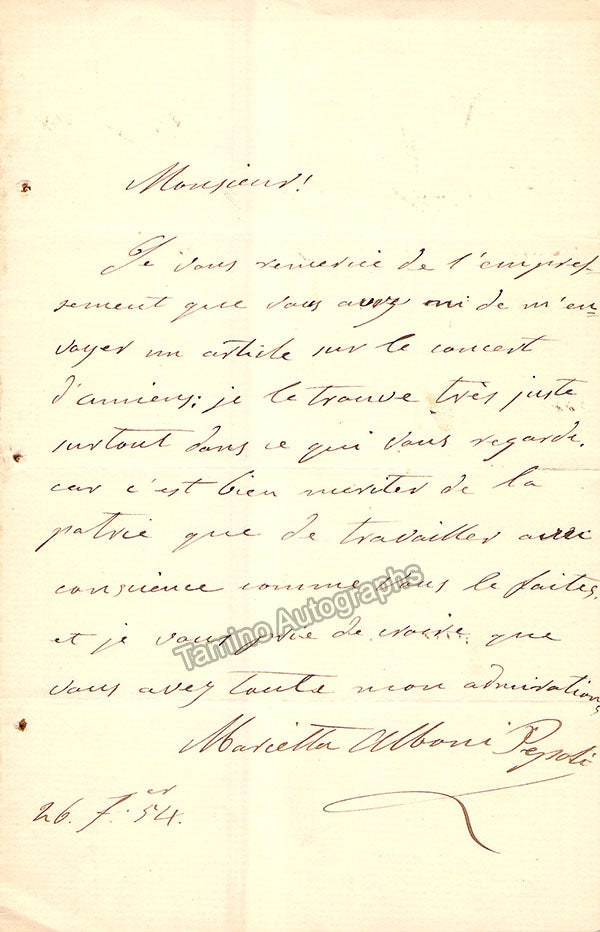 Monsieur!
Je vous remercie de l'empres-
sement que vous avez mi de m'en-
voyer un article sur le concert
d'amiens; je le trouve très juste
surtout dans ce qui vous regarde,
car c'est bien meriter de la
patrie que de travailler avec
conscience comme vous le faites,
et je vous prie de croire que
vous avez toute mon admiration
Marietta Alboni Pepoli
26. 54.
Tamino Autographs